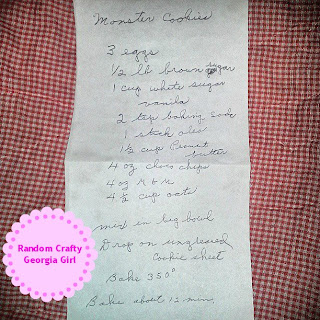 Monster Cookies
3 eggs
1/2 lb brown sugar
1 cup white sugar
vanila
2 tsp baking soda
1 stick oleo
1 1/2 cup Peanut
butter
4 oz choc chips
4 oz M & M
4 1/2 cup oats
mix in big bowl
Drop on ungreased
Cookie sheet
Bake 350°
Bake about 12 mins.
Random Crafty
Georgia Girl